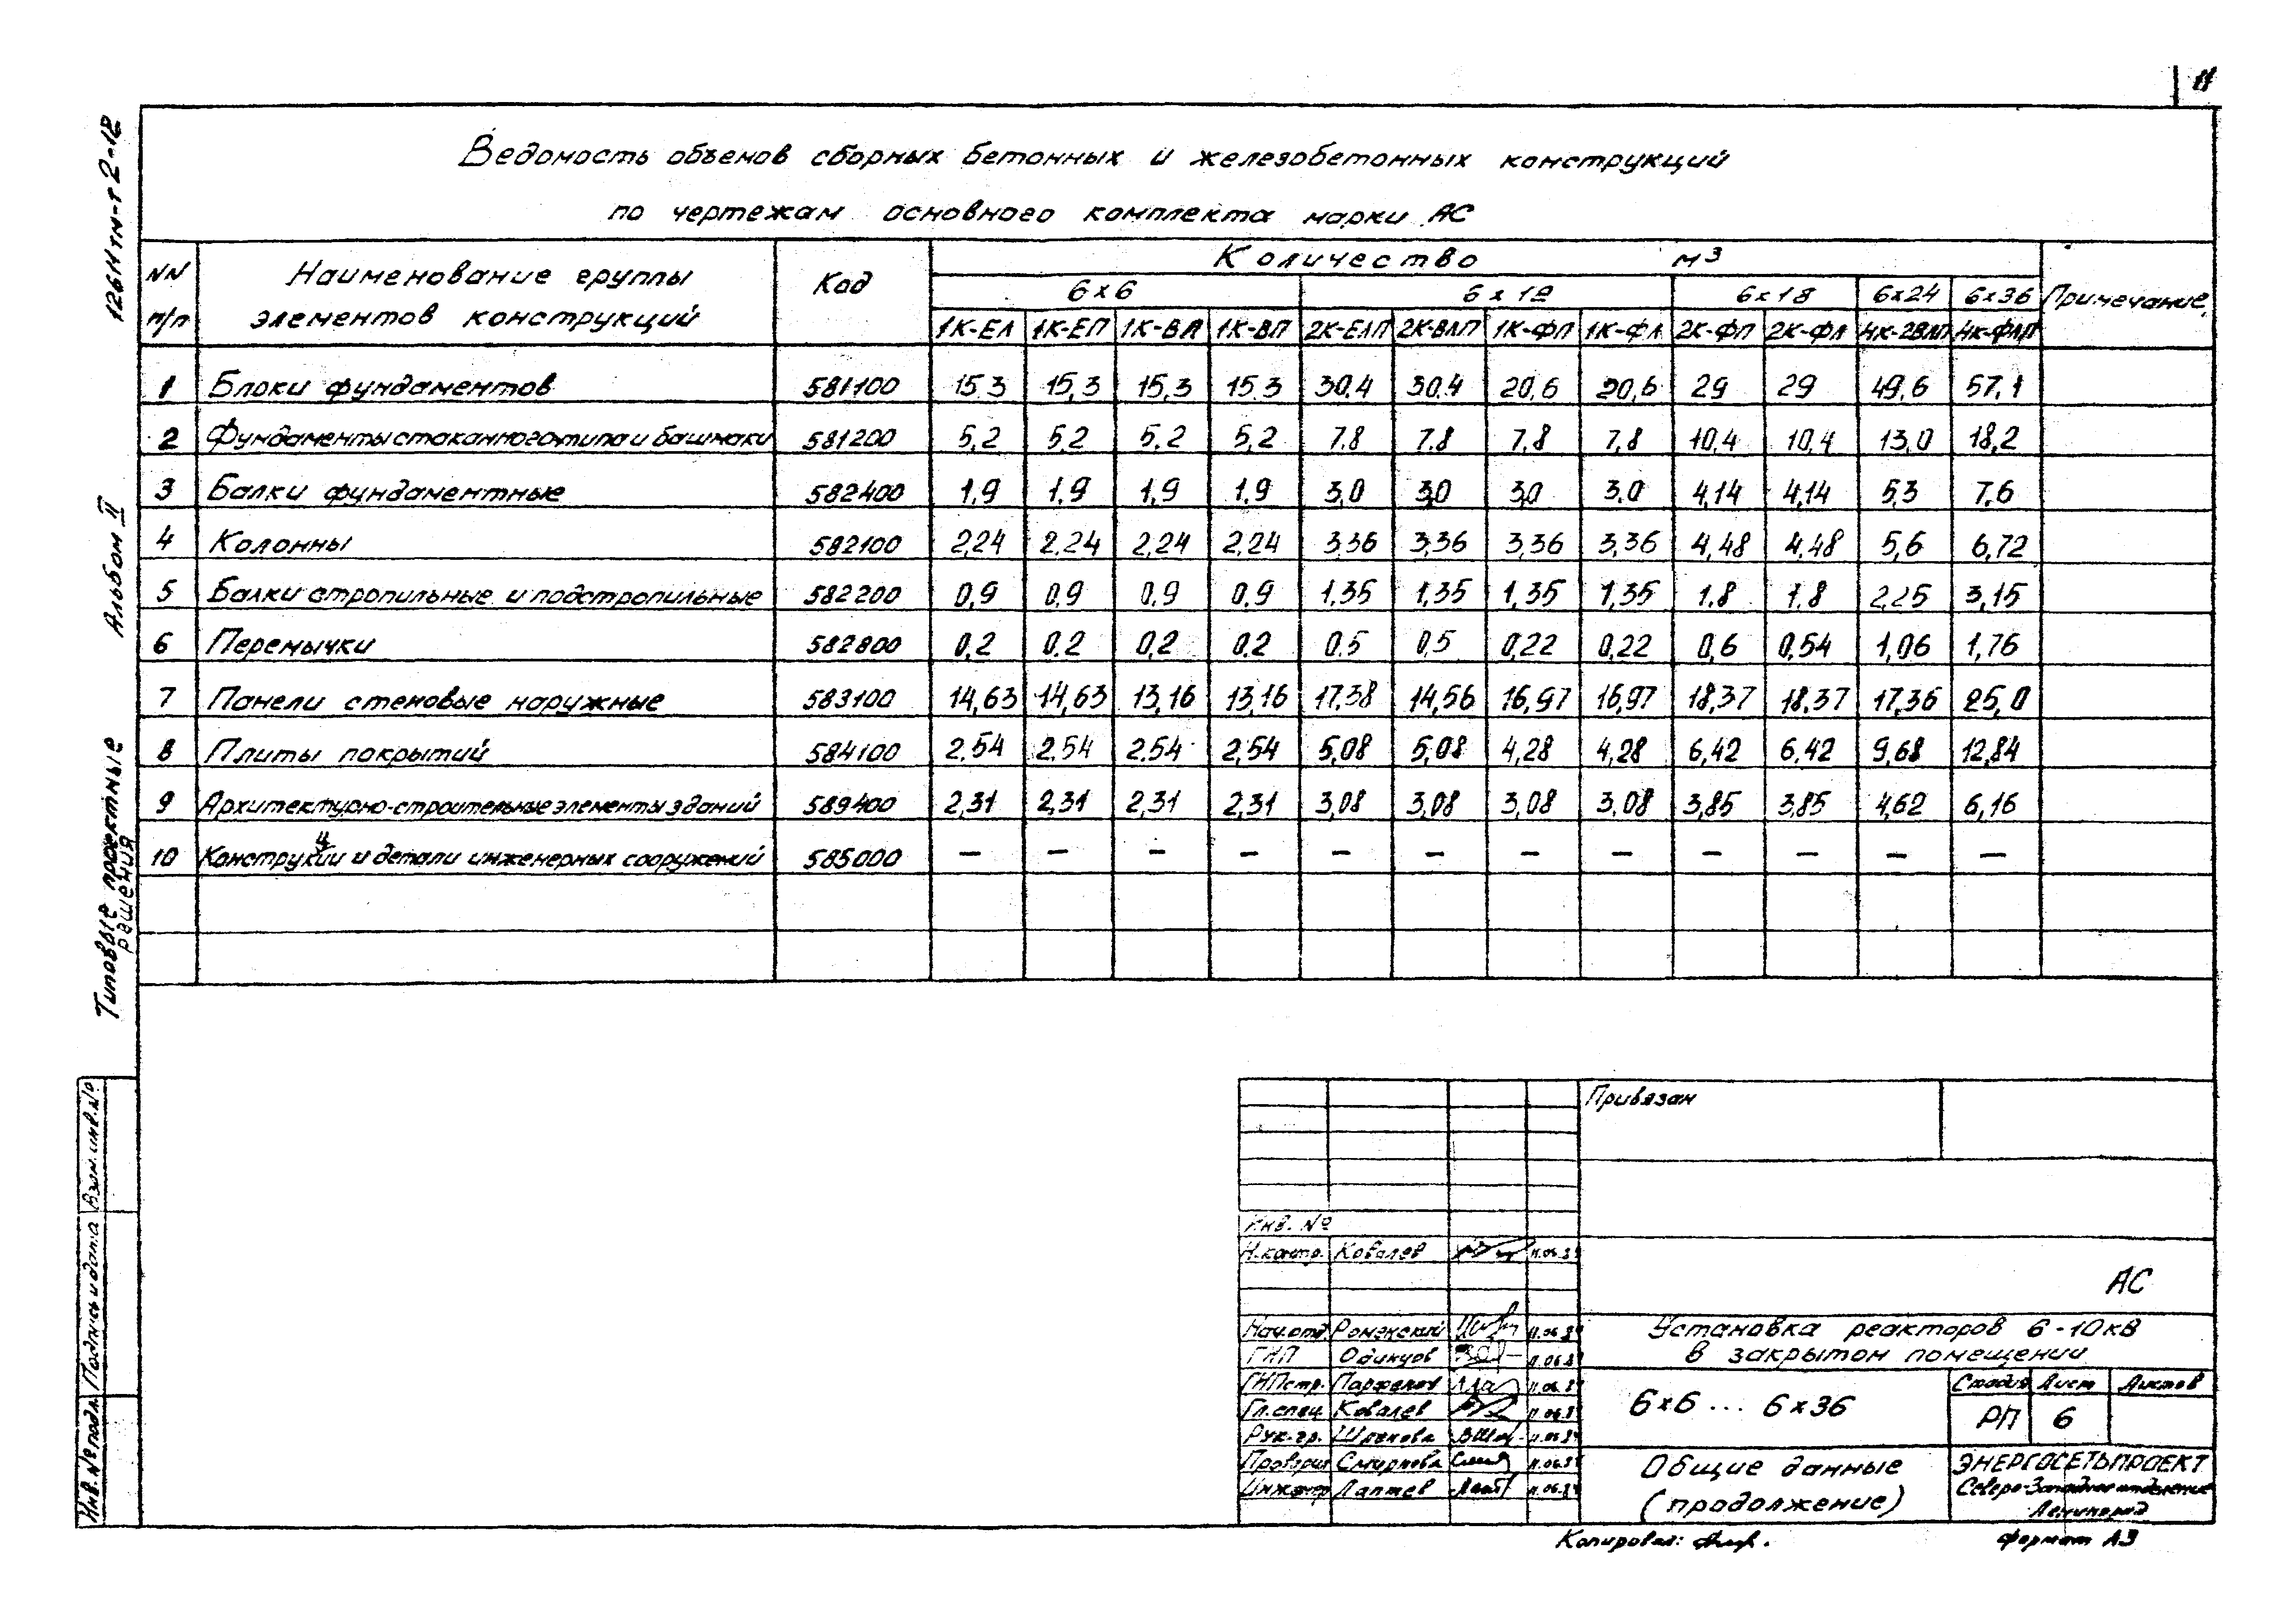 11
Ведомость объемов сборных бетонных и железобетонных конструкций
по чертежам основного комплекта марки АС
NN п/п Наименование группы элементов конструкций Код Количество м3 Примечание
6х6 6х12 6х18 6х24 6х36
1К-ЕЛ 1К-ЕП 1К-ВЛ 1К-ВП 2К-ЕЛП 2К-ВЛП 1К-ФП 1К-ФЛ 2К-ФП 2К-ФЛ 4К-2ВЛП 4К-ФЛП
1 Блоки фундаментов 581100 15.3 15,3 15,3 15.3 30,4 30.4 20,6 20,6 29 29 49,6 57,1
2 Фундаменты стаканного типа и башмаки 581200 5,2 5.2 5.2 5,2 7.8 7.8 7,8 7,8 10,4 10,4 13,0 18,2
3 Балки фундаментные 582400 1,9 1,9 1,9 1,9 3,0 3,0 3,0 3,0 4,14 4,14 5,3 7,6
4 Колонны 582100 2,24 2.24 2,24 2,24 3,36 3,36 3,36 3,36 4,48 4,48 5,6 6,72
5 Балки стропильные и подстропильные 582200 0,9 0,9 0,9 0,9 1,35 1,35 1,35 1,35 1.8 1.8 2,25 3,15
6 Перемычки 582800 0,2 0.2 0,2 0.2 0.5 0,5 0,22 0,22 0,6 0,54 1,06 1,76
7 Панели стеновые наружные 583100 14,63 14,63 13,16 13,16 17.38 14,56 16,97 16,97 18,37 18,37 17,36 25,0
8 Плиты покрытий 584100 2.54 2.54 2.54 2,54 5,08 5,08 4,28 4,28 6,42 6,42 9,68 12,84
9 Архитектурно-строительные элементы зданий 589400 2,31 2,31 2,31 2,31 3,08 3,08 3,08 3,08 3,85 3,85 4,62 6,16
10 Конструкции и детали инженерных сооружений 585000 — — — — — — — — — — — —
Альбом II
Типовые проектные
решения
Инв.№подл. Подпись и дата Взам.инв.№
Привязан
Инв. №
Н.контр. Ковалев 11.06.84
АС
Нач.отд Роменский 11.06.84
ГИП Одинцов 11.06.84
ГИПстр. Парфенов 11.06.84
Гл.спец. Ковалев 11.06.84
Рук.гр. 11.06.84
Проверил Смирнова 11.06.84
Инженер Лаптев 11.06.84
Установка реакторов 6-10кВ
в закрытом помещении
6х6 ... 6х36
Стадия Лист Листов
РП 6
Общие данные
(продолжение)
ЭНЕРГОСЕТЬПРОЕКТ
Северо-Западное отделение
Ленинград
Копировал:
формат А3